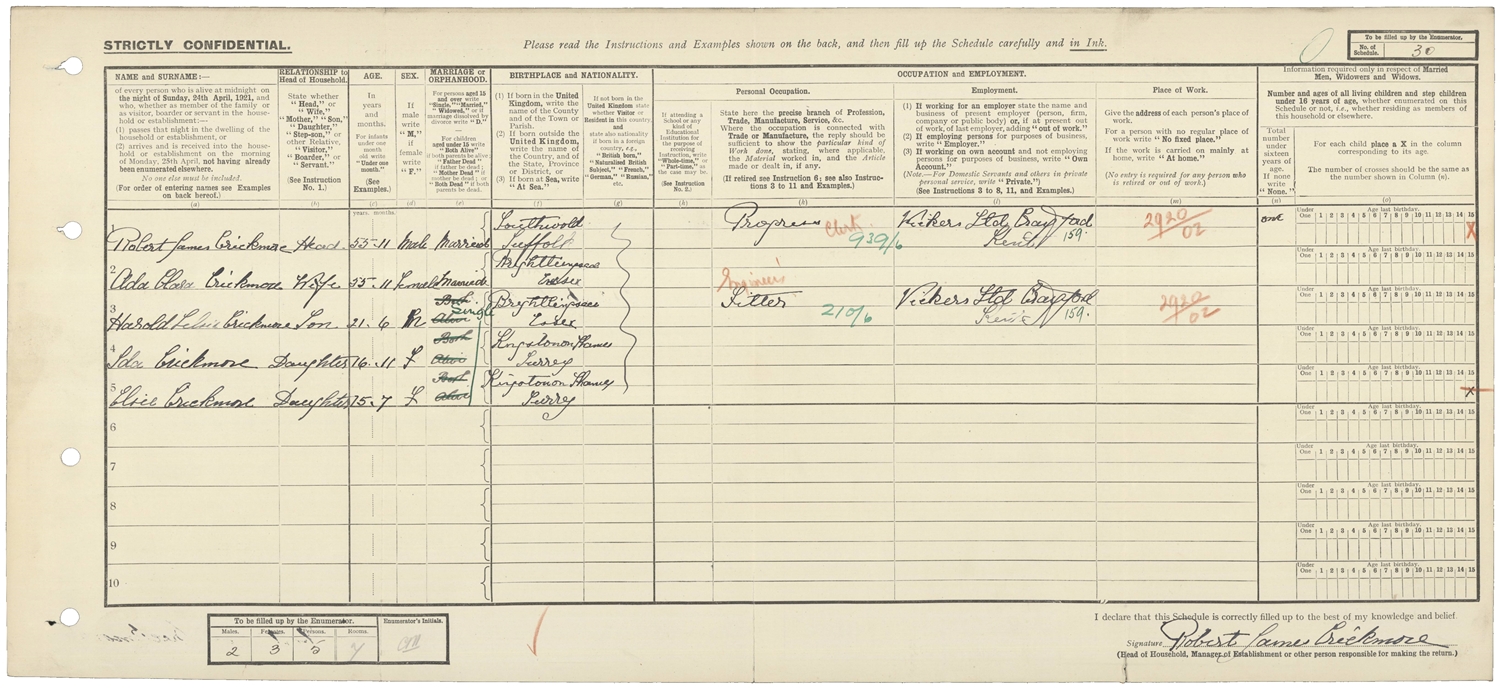 STRICTLY CONFIDENTIAL.
Please read the Instructions and Examples shown on the back, and then fill up the Schedule carefully and in Ink.
To be filled up by the Enumerator.
No. of Schedule. 30
NAME and SURNAME:—
of every person who is alive at midnight on
the night of Sunday, 24th April, 1921, and
who, whether as member of the family or
as visitor, boarder or servant in the house-
hold or establishment:—
(1) passes that night in the dwelling of the
household or establishment, or
(2) arrives and is received into the house-
hold or establishment on the morning
of Monday, 25th April, not having already
been enumerated elsewhere.
No one else must be included.
(For order of entering names see Examples
on back hereof.)
(a)
RELATIONSHIP to
Head of Household.
State whether
"Head," or
"Wife,"
"Mother," "Son,"
"Daughter,"
"Step-son," or
other Relative,
"Visitor,"
"Boarder," or
"Servant."
(See Instruction
No. 1.)
(b)
AGE.
In
years
and
months.
For infants
under one
month
old write
"Under one
month."
(See
Examples.)
(c)
SEX.
If
male
write
"M,"
if
female
write
"F."
(d)
MARRIAGE or
ORPHANHOOD.
For persons aged 15
and over write
"Single," "Married,"
"Widowed," or if
marriage dissolved by
divorce write "D."
For children
aged under 15 write
"Both Alive"
if both parents be alive
"Father Dead"
if father be dead;
"Mother Dead" if
mother be dead; or
"Both Dead" if both
parents be dead.
(e)
BIRTHPLACE and NATIONALITY.
(1) If born in the United
Kingdom, write the
name of the County
and of the Town or
Parish.
(2) If born outside the
United Kingdom,
write the name of
the Country, and of
the State, Province
or District, or
(3) If born at Sea, write
"At Sea."
(f)
If not born in the
United Kingdom state
whether Visitor or
Resident in this country,
and
state also nationality
if born in a foreign
country, e.g.,
"British born,"
"Naturalised British
Subject," "French,"
"German," "Russian,"
etc.
(g)
If attending a
School or any
kind of
Educational
Institution for the
purpose of
receiving
Instruction, write
"Whole-time," or
"Part-time," as
the case may be.
(See Instruction
No. 2.)
(h)
OCCUPATION and EMPLOYMENT.
Personal Occupation.
State here the precise branch of Profession,
Trade, Manufacture, Service, &c.
Where the occupation is connected with
Trade or Manufacture, the reply should be
sufficient to show the particular kind of
Work done, stating, where applicable,
the Material worked in, and the Article
made or dealt in, if any.
(If retired see Instruction 6; see also Instruc-
tions 3 to 11 and Examples.)
(k)
Employment.
(1) If working for an employer state the name and
business of present employer (person, firm,
company or public body) or, if at present out
of work, of last employer, adding "out of work."
(2) If employing persons for purposes of business,
write "Employer."
(3) If working on own account and not employing
persons for purposes of business, write "Own
Account."
(Note.—For Domestic Servants and others in private
personal service, write "Private.")
(See Instructions 3 to 8, 11, and Examples.)
(l)
Place of Work.
Give the address of each person's place of
work.
For a person with no regular place of
work write "No fixed place."
If the work is carried on mainly at
home, write "At home."
(No entry is required for any person who
is retired or out of work.)
(m)
Information required only in respect of Married
Men, Widowers and Widows.
Number and ages of all living children and step children
under 16 years of age, whether enumerated on this
Schedule or not, i.e., whether residing as members of
this household or elsewhere.
Total
number
under
sixteen
years of
age.
If none
write
"None."
(n)
For each child place a X in the column
corresponding to its age.
The number of crosses should be the same as
the number shown in Column (n).
(o)
years. months.
Robert James Crickmore Head 55-11 Male Married Southwold Suffolk Progress Clerk 939/6 Vickers Ltd Crayford Kent 159. 2920/02 one X
2 Ada Clara Crickmore Wife 55-11 Female Married Brightlingsea Essex
3 Harold Leslie Crickmore Son 21-6 M Both Alive Single Brightlingsea Essex Engineer's Fitter 210/6 Vickers Ltd Crayford Kent 159. 2920/02
4 Ida Crickmore Daughter 16-11 F Both Alive Kingston on Thames Surrey
5 Elsie Crickmore Daughter 15-7 F Both Alive Kingston on Thames Surrey X
6
7
8
9
10
Under One Age last birthday. 1 2 3 4 5 6 7 8 9 10 11 12 13 14 15
To be filled up by the Enumerator.
Males. Females. Persons. Rooms.
2 3 5 7
Enumerator's Initials.
I declare that this Schedule is correctly filled up to the best of my knowledge and belief.
Signature Robert James Crickmore
(Head of Household, Manager of Establishment or other person responsible for making the return.)